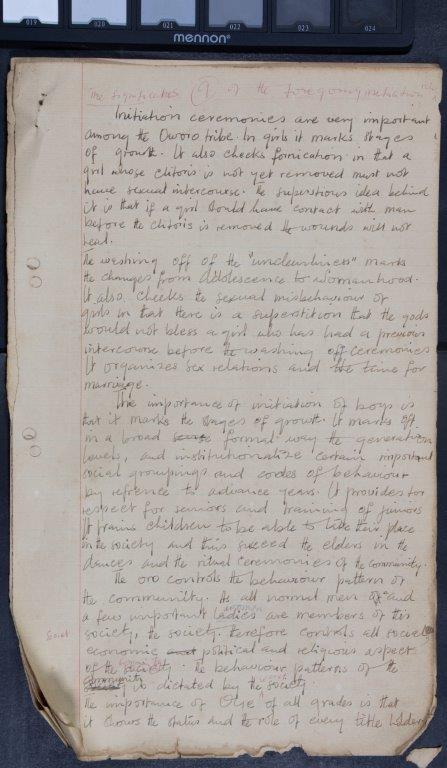 019 020 021 022 023 024
mennon
The significances (9) of the foregoing initiation rites
Initiation ceremonies are very important
among the Oworo tribe. In girls it marks stages
of growth. It also checks fornication in that a
girl whose clitoris is not yet removed must not
have sexual intercourse. The superstious idea behind
it is that if a girl should have contact with man
before the clitoris is removed the wounds will not
heal.
The washing off of the "uncleanliness" marks
the changes from adolescence to womanhood.
It also checks the sexual misbehaviour of
girls in that there is a superstition that the gods
would not bless a girl who has had a previous
intercourse before the washing off ceremonies
It organizes sex relations and the time for
marriage.
The importance of initiation of boys is
that it marks the stages of growth. It marks off
in a broad formal way the generation
levels, and institutionalize certain important
social groupings and codes of behaviour
by refrence to advance years. It provides for
respect for seniors and training of juniors
It trains children to be able to take their place
in the society and thus succeed the elders in the
dances and the ritual ceremonies of the community.
The oro controls the behaviour pattern of
the community. As all normal men and
a few important ladies women are members of this
society, the society therefore controls all social
Social
economic and political and religious aspects
of the society. The behaviour patterns of the
community is dictated by the society
The importance of Olye of all grades is that
it shows the status and the role of every title holder